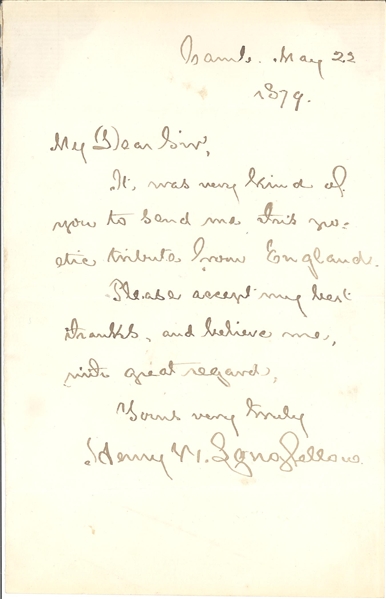 Camb. May 22
1879.
My Dear Sir,
It was very kind of
you to send me this po-
etic tribute from England.
Please accept my best
thanks, and believe me,
with great regard,
Yours very truly
Henry W. Longfellow.